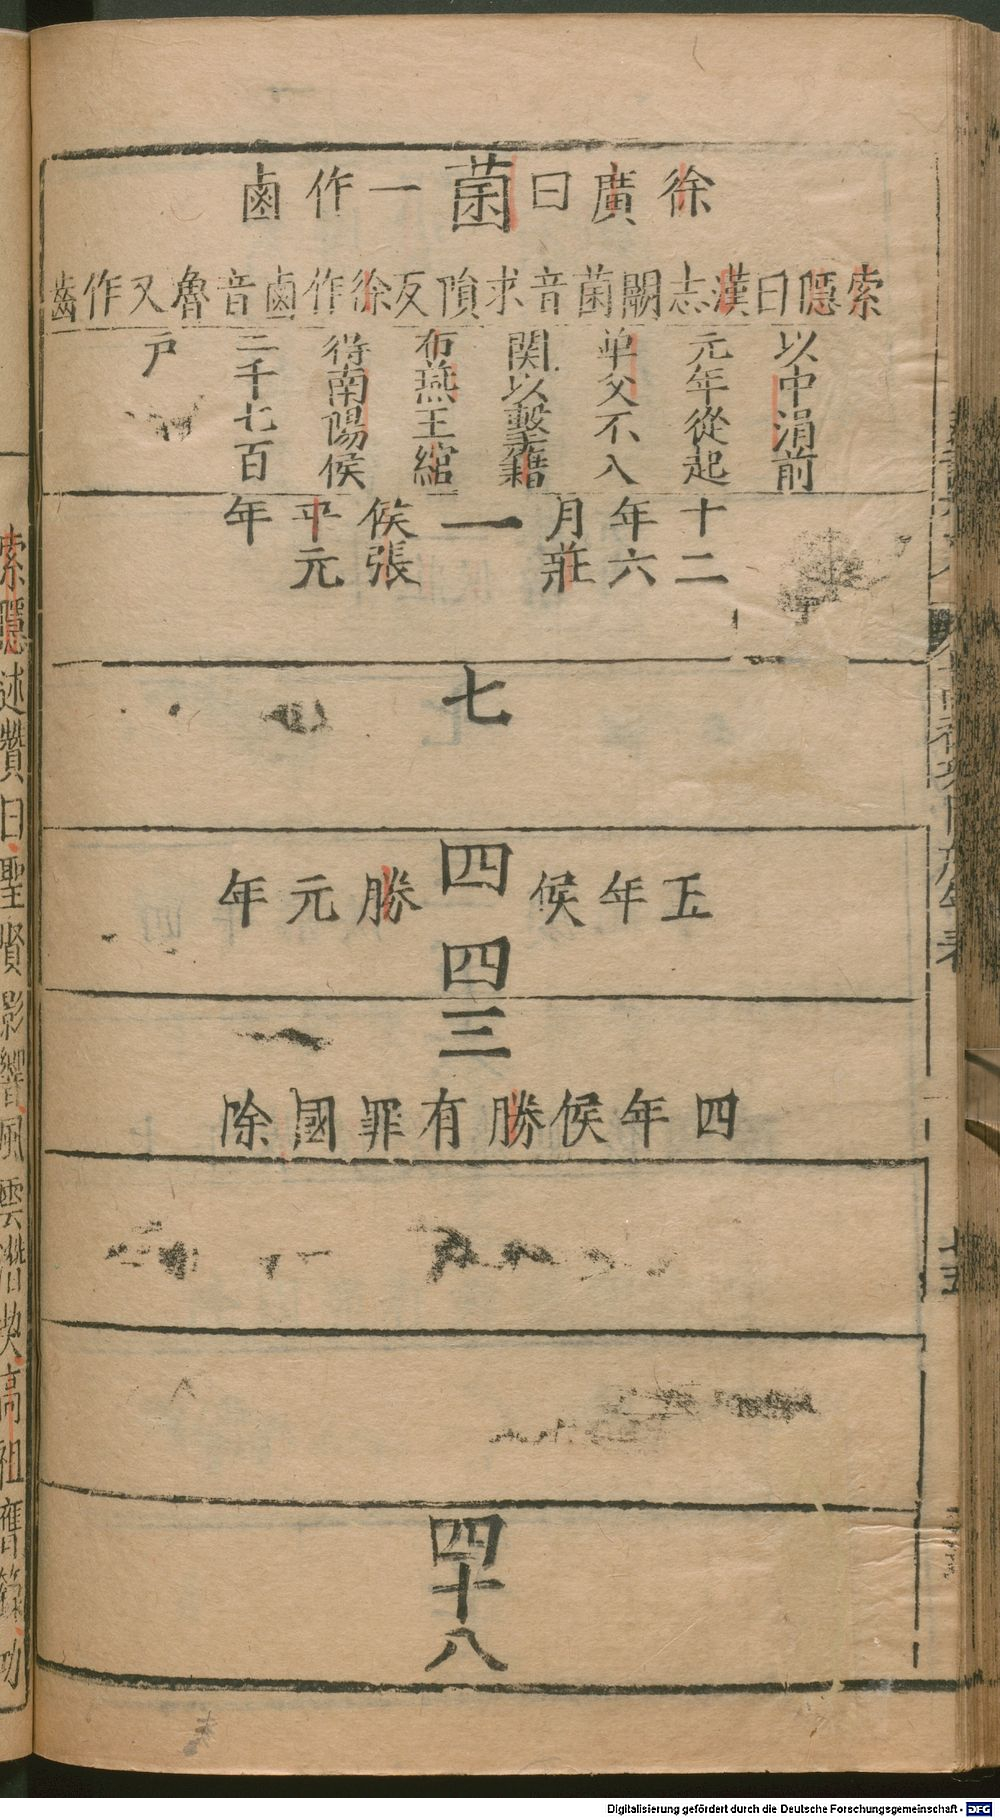 徐廣曰菌一作鹵
索隱曰漢志闕菌音求隕反徐作鹵音魯又作齒
以中涓前
元年從起
單父不入
関以擊籍
布燕王綰
得南陽侯
二千七百
戶
十二
年六
月莊
一
侯張
平元
年
七
五年侯四勝元年
四
三
四年侯勝有罪國除
四十八
索隱述贊曰聖賢影響風雲潛契高祖膺籙功
Digitalisierung gefördert durch die Deutsche Forschungsgemeinschaft - DFG